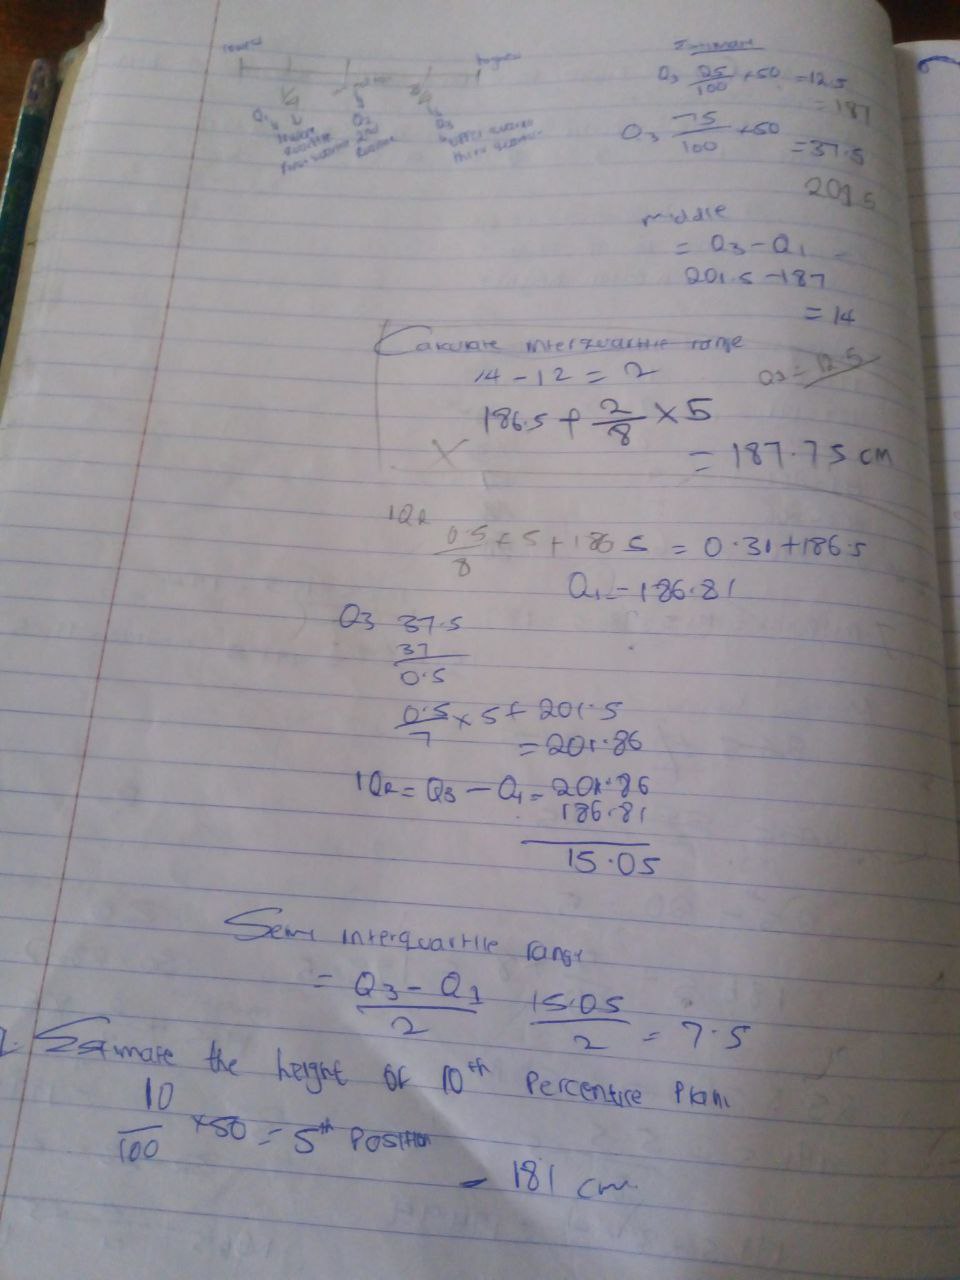 lowest
highest
Q1
lower
quartile
Q2
2nd
quartile
Q3
upper quartile
Estimate
Q1 25/100 × 50 = 12.5
= 187
Q3 75/100 × 50
= 37.5
201.5
middle
= Q3 - Q1
201.5 - 187
= 14
Calculate interquartile range
14 - 12 = 2
186.5 + 2/8 × 5
= 187.75 cm
IQR
0.5/8 × 5 + 186.5 = 0.31 + 186.5
Q1 = 186.81
Q3 37.5
37
0.5
0.5/7 × 5 + 201.5
= 201.86
IQR = Q3 - Q1 = 201.86
186.81
15.05
Semi interquartile range
= Q3 - Q1/2 15.05/2 = 7.5
Estimate the height of 10th Percentile Plant
10/100 × 50 = 5th Position
= 181 cm